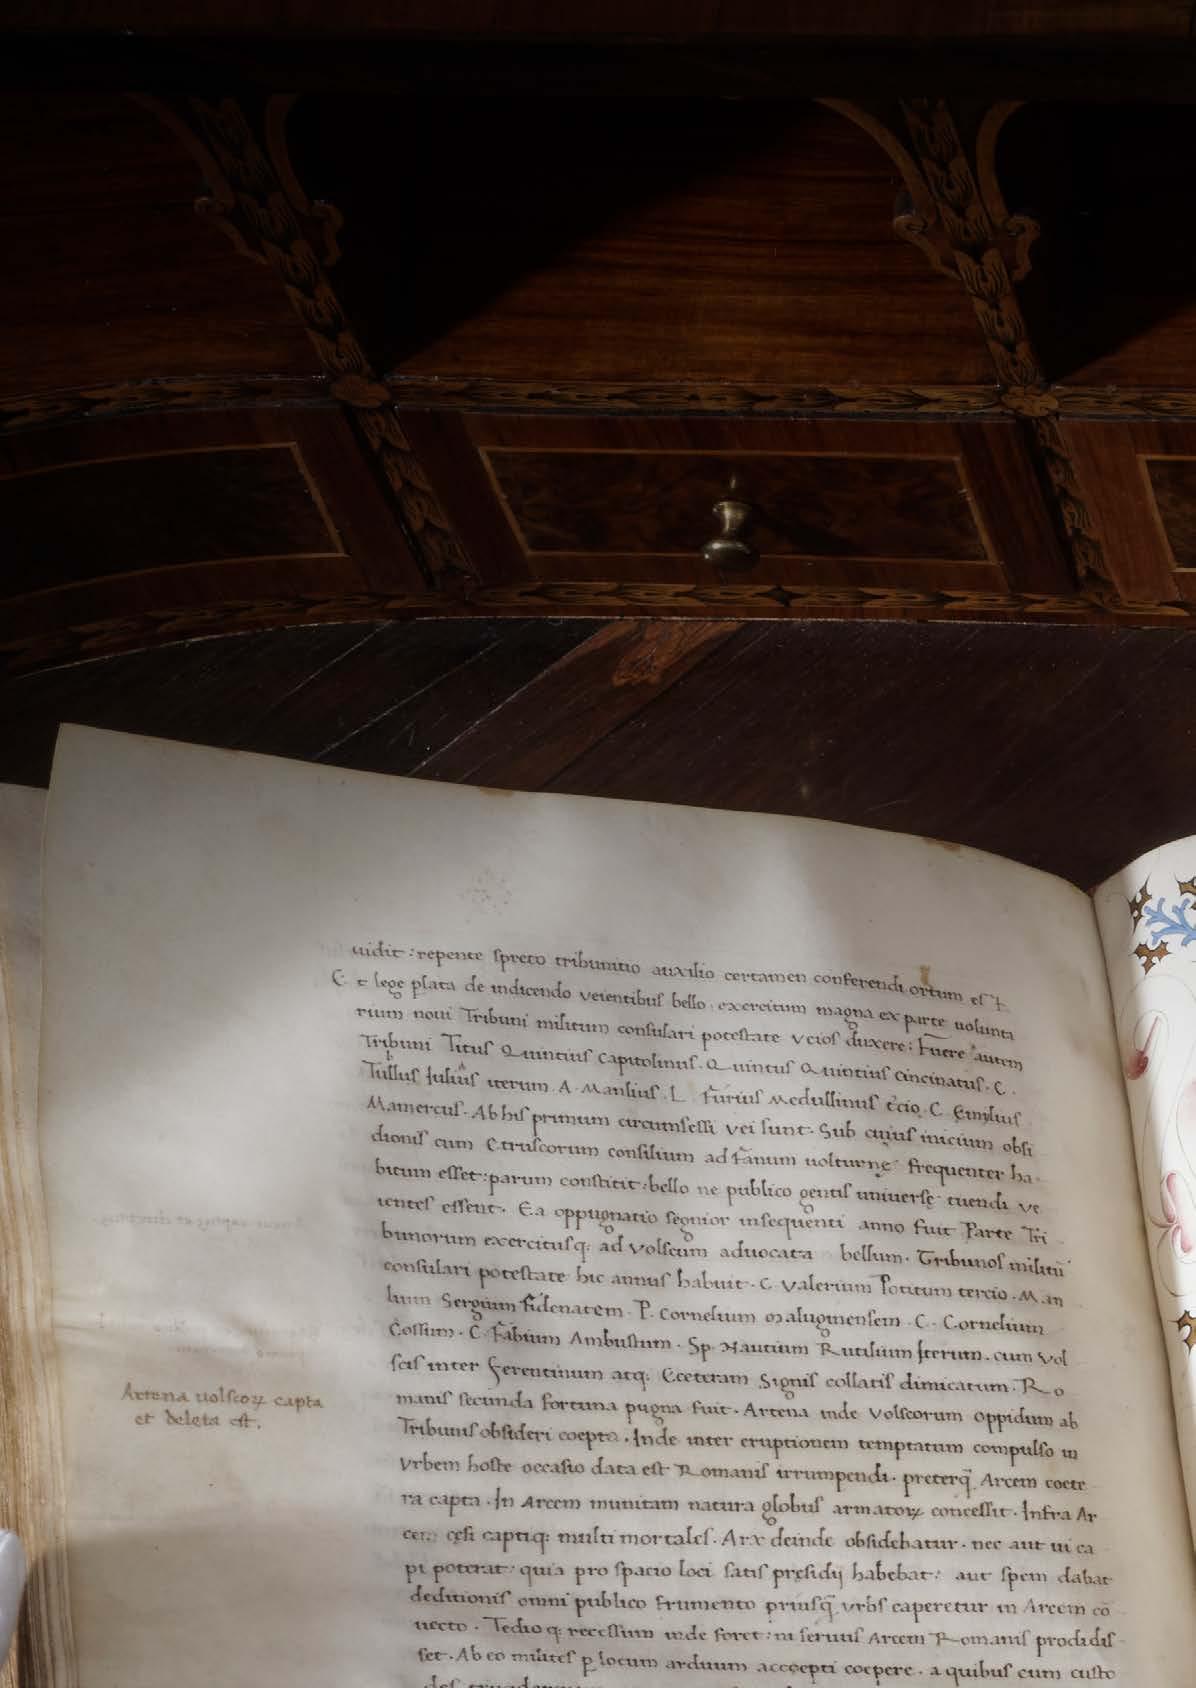 uidit : repente spreto tribunitio auxilio certamen conferendi ortum est
Et lege plata de indicendo veientibus bello. exercitum magna ex parte volunta
rium noui Tribuni militum consulari potestate veios duxere : Fuere autem
Tribuni Titus Quintius Capitolinus. Quintus Quintius Cincinatus. C.
Tullus Iulius iterum A. Manlius. L. Furius Medullinus t̄cio C. Emylius
Mamercus. Ab his primum circumsessi vei sunt. Sub cuius inicium obsi
dionis cum Etruscorum consilium ad Fanum volturnę frequenter ha
bitum esset : parum constitit : bello ne publico gentis vniuersę tuendi ve
ientes essent. Ea oppugnatio segnior insequenti anno fuit Parte Tri
bunorum exercitusq; ad volscum aduocata bellum. Tribunos militū
consulari potestate hic annus habuit. C Valerium Potitum tercio. Man
lium Sergium Fidenatem. P. Cornelium Maluginensem. C. Cornelium
Cossum. C. Fabium Ambustum. Sp. Nautium Rutilium Iterum. cum Vol
scis inter ferentinum atq; Eceteram Signis collatis dimicatum. Ro
manis secunda fortuna pugna fuit. Artena inde Volscorum oppidum ab
Tribunis obsideri coepta. Inde inter eruptionem temptatum compulso in
Vrbem hoste occasio data est Romanis irrumpendi. preterq̄ Arcem coete
ra capta. In Arcem munitam natura globus armatoꝝ concessit. Infra Ar
cem cęsi captiq; multi mortales. Arx deinde obsidebatur. nec aut ui ca
pi poterat : quia pro spacio loci satis pręsidij habebat : aut spem dabat
deditionis omni publico frumento priusq̄ vrbs caperetur in Arcem cō
uecto. Tedioq; recessum inde foret : ni seruus Arcem Romanis prodidis
set. Ab eo milites ꝑ locum arduum accepti coepere. a quibus cum custo
des
Artena uolscoꝝ capta
et deleta est.